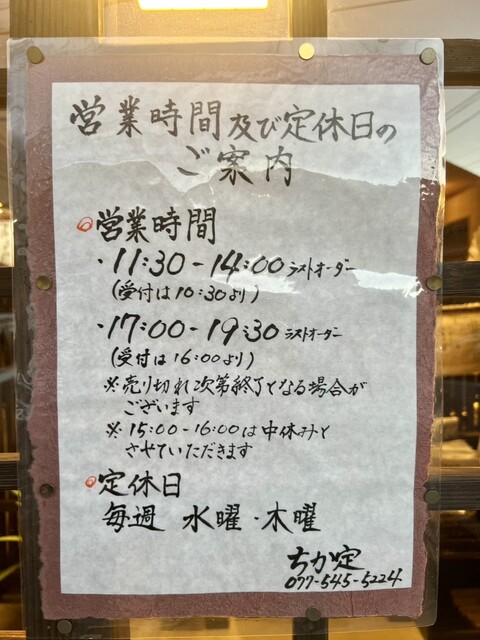 営業時間及び定休日の
ご案内
営業時間
・11:30-14:00 ラストオーダー
(受付は10:30より)
・17:00-19:30 ラストオーダー
(受付は16:00より)
※売り切れ次第終了となる場合が
ございます
※15:00-16:00は中休みと
させていただきます
定休日
毎週 水曜・木曜
ちか定
077-545-5224